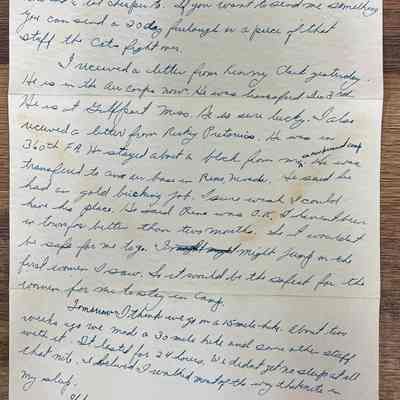 a lot cheaper to. If you want to send me something
you can send a 20 day furlough or a piece of that
stuff the Cats fight over.
I received a letter from Kenny Clark yesterday.
He is in the Air Corps now. He was transfered Dec 3rd.
He is at Gulfport Miss. He is sure lucky. I also
received a letter from Rusty He was in
360th F.A. He stayed about a block from me He was
transfered to an air base in Reno, Nevada. He said he
had a gold bricking job. I sure wish I could
have his place. He said Reno was O.K. I haven't been
in town for better than two months. So it wouldn't
be safe for me to go. I might jump on the
first women I saw. So it would be the safest for the
women for me to stay in Camp.
Tomorrow I think we go on a 15 mile hike. About two
weeks ago we made a 30 mile hike and some other stuff
with it. It lasted for 24 hours. We didn't get no sleep at all
that nite. I believe I walked most of the way in
my sleep.